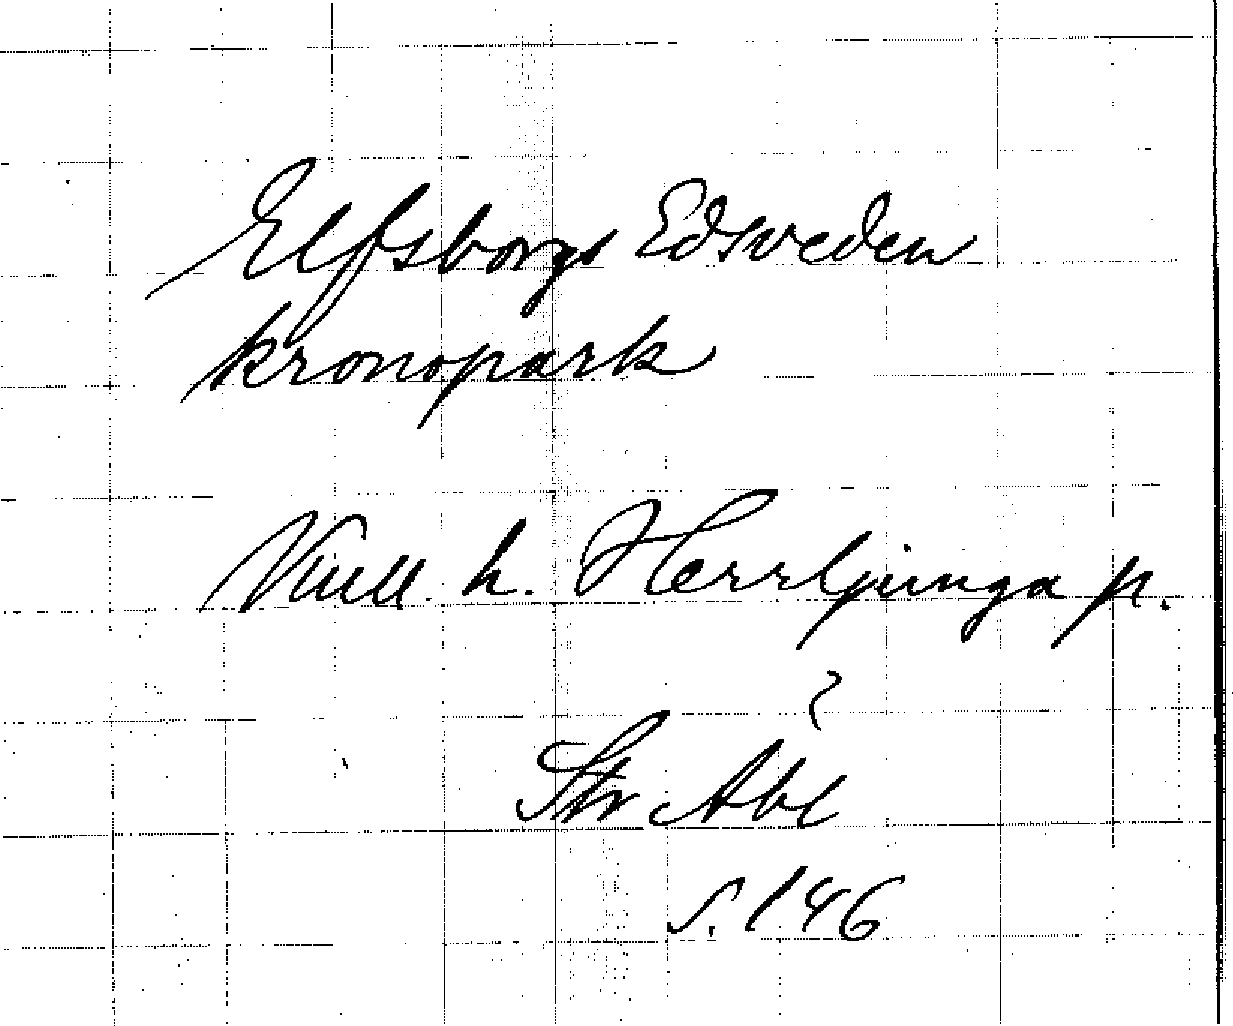 Elfsborgs Edsveden
kronopark
Kull. h. Herrljunga p.
?
Str Abl
s. 146